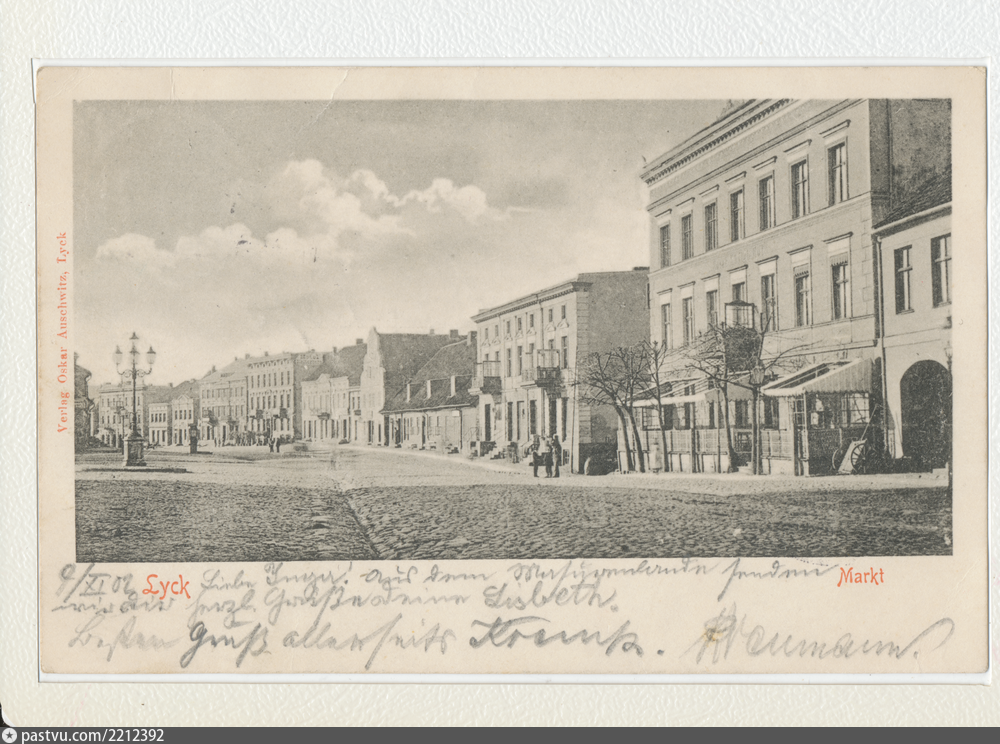 Verlag Oskar Auschwitz, Lyck
Lyck
Markt
9/XI 02 Liebe Inga! Aus dem Masurenlande senden
wir dir herzl. Grüße deine Lisbeth.
Besten Gruß allerseits
Neumann.
pastvu.com/2212392